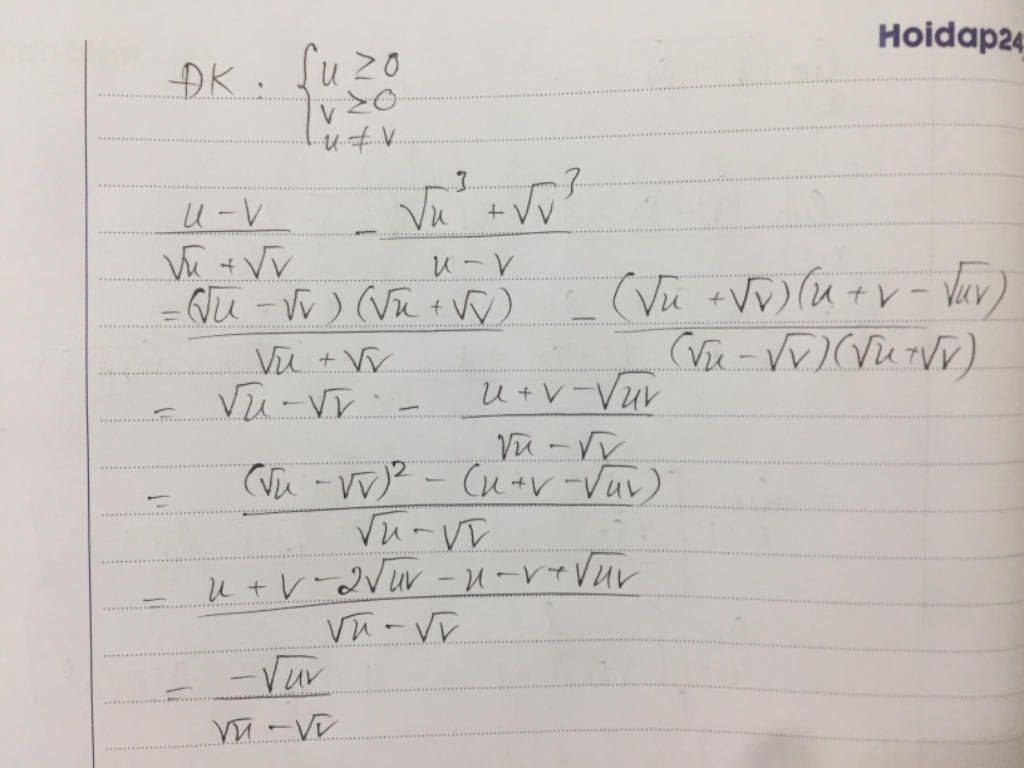 Hoidap24
ĐK : { u ≥ 0
v ≥ 0
u ≠ v
(u - v)/(√u + √v) - (√u³ + √v³)/(u - v)
= (√u - √v)(√u + √v)/(√u + √v) - (√u + √v)(u + v - √uv)/((√u - √v)(√u + √v))
= √u - √v - (u + v - √uv)/(√u - √v)
= ((√u - √v)² - (u + v - √uv))/(√u - √v)
= (u + v - 2√uv - u - v + √uv)/(√u - √v)
= (-√uv)/(√u - √v)